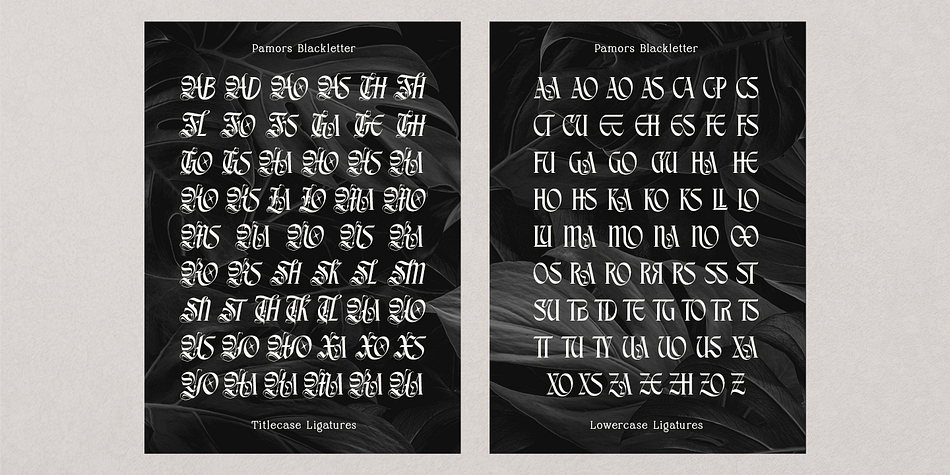 Pamors Blackletter
AB AD AO AS FH
FL FO FS GA GE GH
GO GS HA HO HS KA
KO KS LA LO MA MO
MS NA NO NS RA
RO RS SH SK SL SM
SN ST TH TK TL UA UO
US XA XO XS
YO
Titlecase Ligatures
Pamors Blackletter
AA AO AO AS CA CP CS
CT CU EE EH ES FE FS
FU GA GO GU HA HE
HO HS KA KO KS LL LO
LU MA MO NA NO OO
OS RA RO RR RS SS ST
SU TB TD TE TG TO TR TS
TT TU TY UA UO US XA
XO XS ZA ZE ZH ZO Z
Lowercase Ligatures